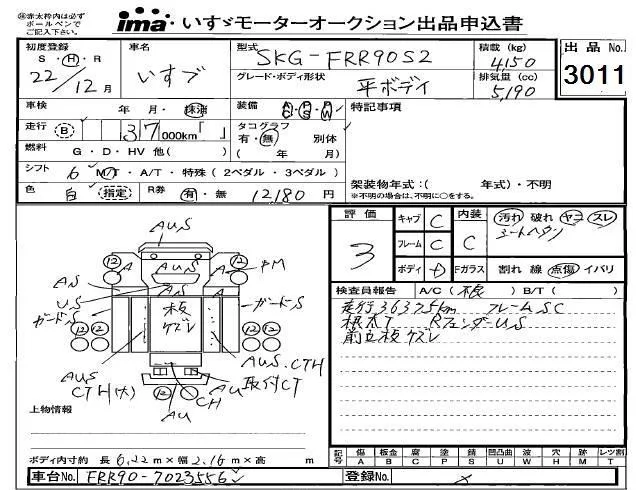 ㊟赤太枠内は必ず
ボールペンで
ご記入下さい。
ima いすゞモーターオークション出品申込書
初度登録 車名 型式 積載 (kg) 出品No.
S・H・R いすゞ SKG-FRR90S2 4150 3011
22/12月 グレード・ボディ形状 平ボディ 排気量 (cc) 5,190
車検 年 月・抹消 装備 特記事項
走行 B 37,000km「 」 タコグラフ 有・無 別体
燃料 G・D・HV 他( ) ( 年 月)
シフト 6 M/T・A/T・特殊(2ペダル・3ペダル) 架装物年式:( 年式)・不明
色 白 指定 R券 有・無 12,180円 ※不明の場合は、不明に○をする。
評価 3
キャブ C 内装 C 汚れ 破れ ヤニ スレ
フレーム C シートヘタリ
ボディ Fガラス 割れ 線 点傷 イバリ
検査員報告 A/C( ) B/T( )
走行36375km フレームSC
RフェンダーUS
前立板ケズレ
AUS
12 A AUS A 12 PM
AS AS
US
ガードS 板ケズレ ガードS
12 12 12 12
AUS AUS・CTH
CTH(大) AU 取付CT
12 CH 12
AU
上物情報
ボディ内寸約 長 6.22m×幅 2.16m×高 m
記号 傷 A 板金 B 腐 C 塗 P 錆 S 凹凸曲 U 波 W 穴 H 跡 M レツ割 T
車台No. FRR90-7023556 登録No.